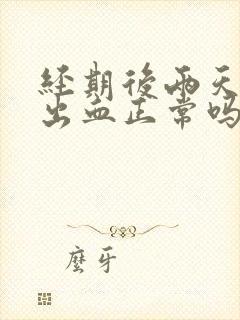 經期後兩天
出血正常嗎
麼牙